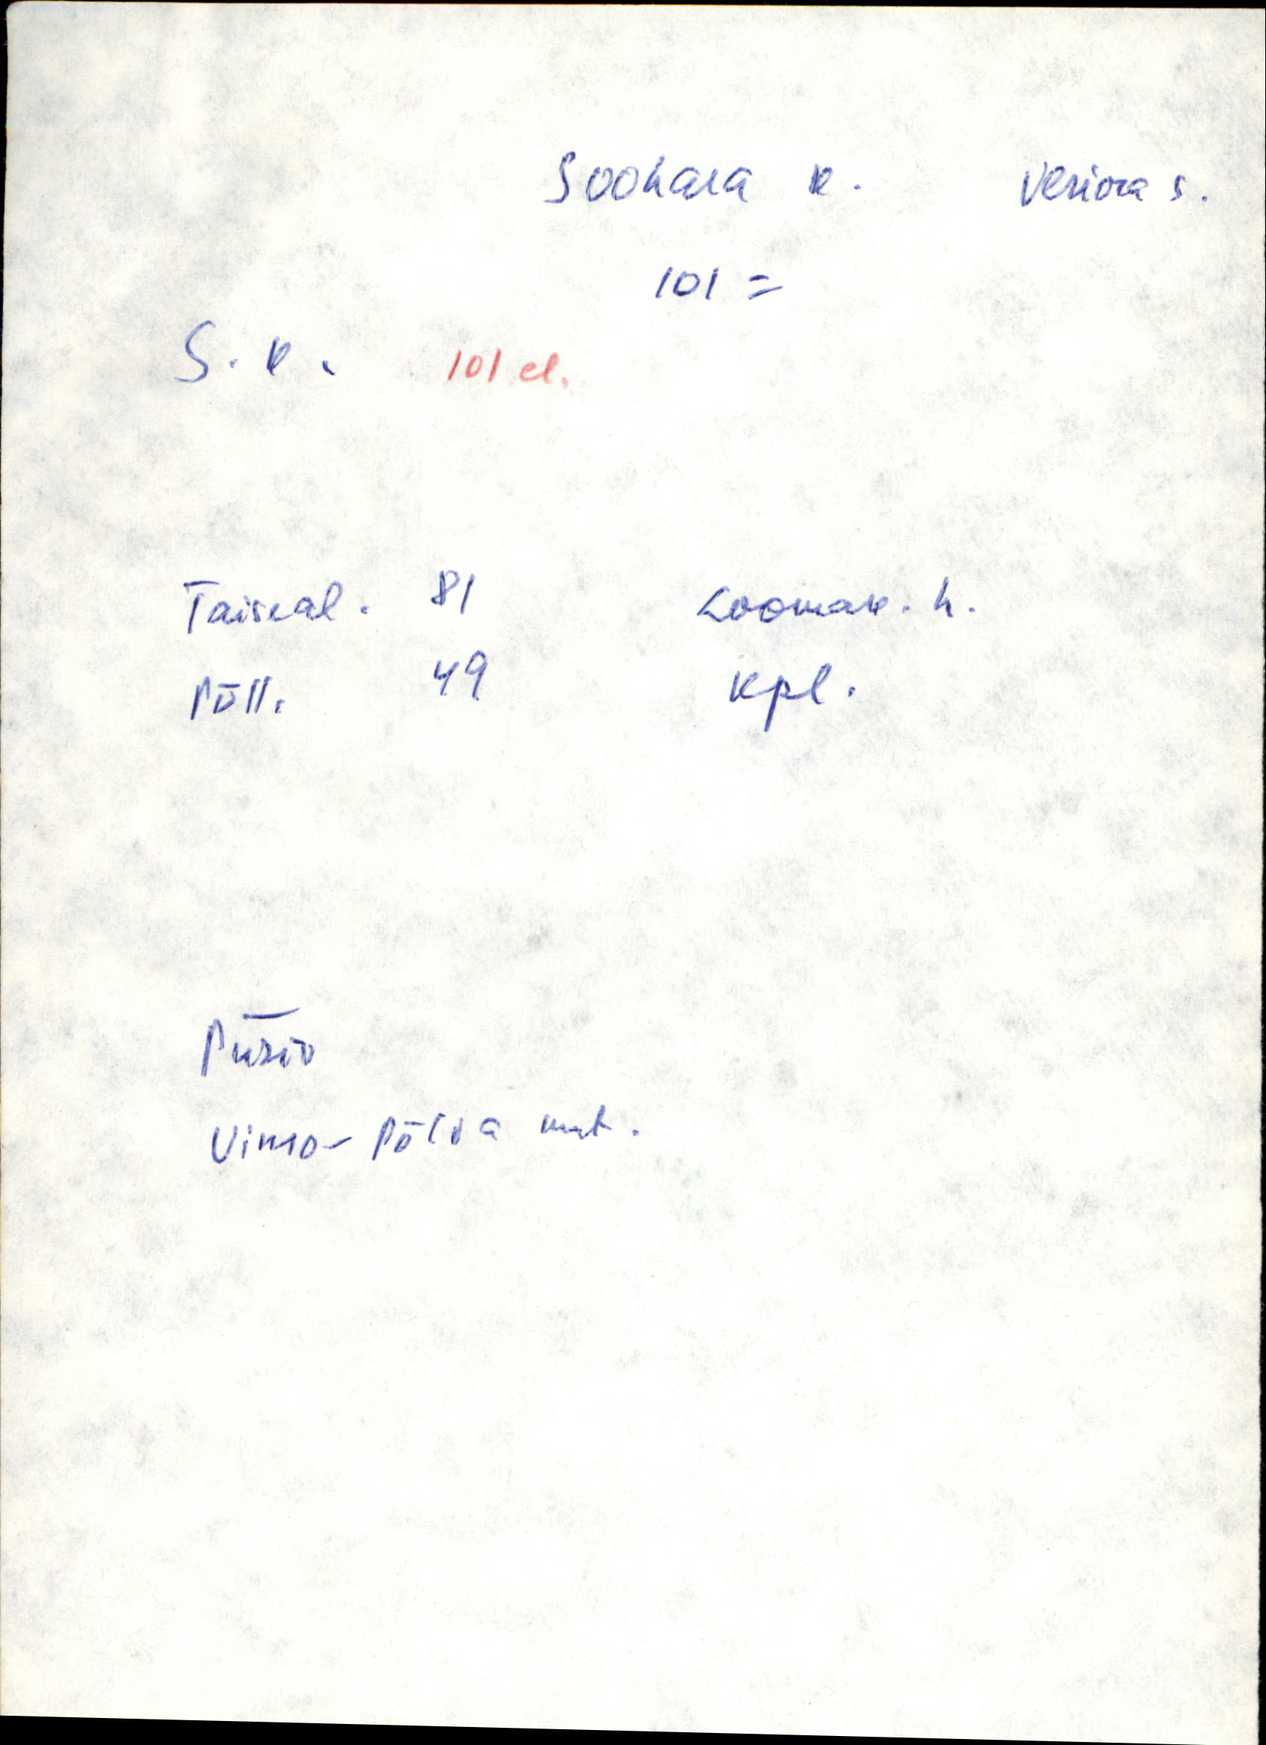 Soohara k. Veriora s.
101 =
S. k. 101 el.
Täiseal. 81 Loomak. h.
Põll. 49 Kpl.
Puživ
Põlva mnt.